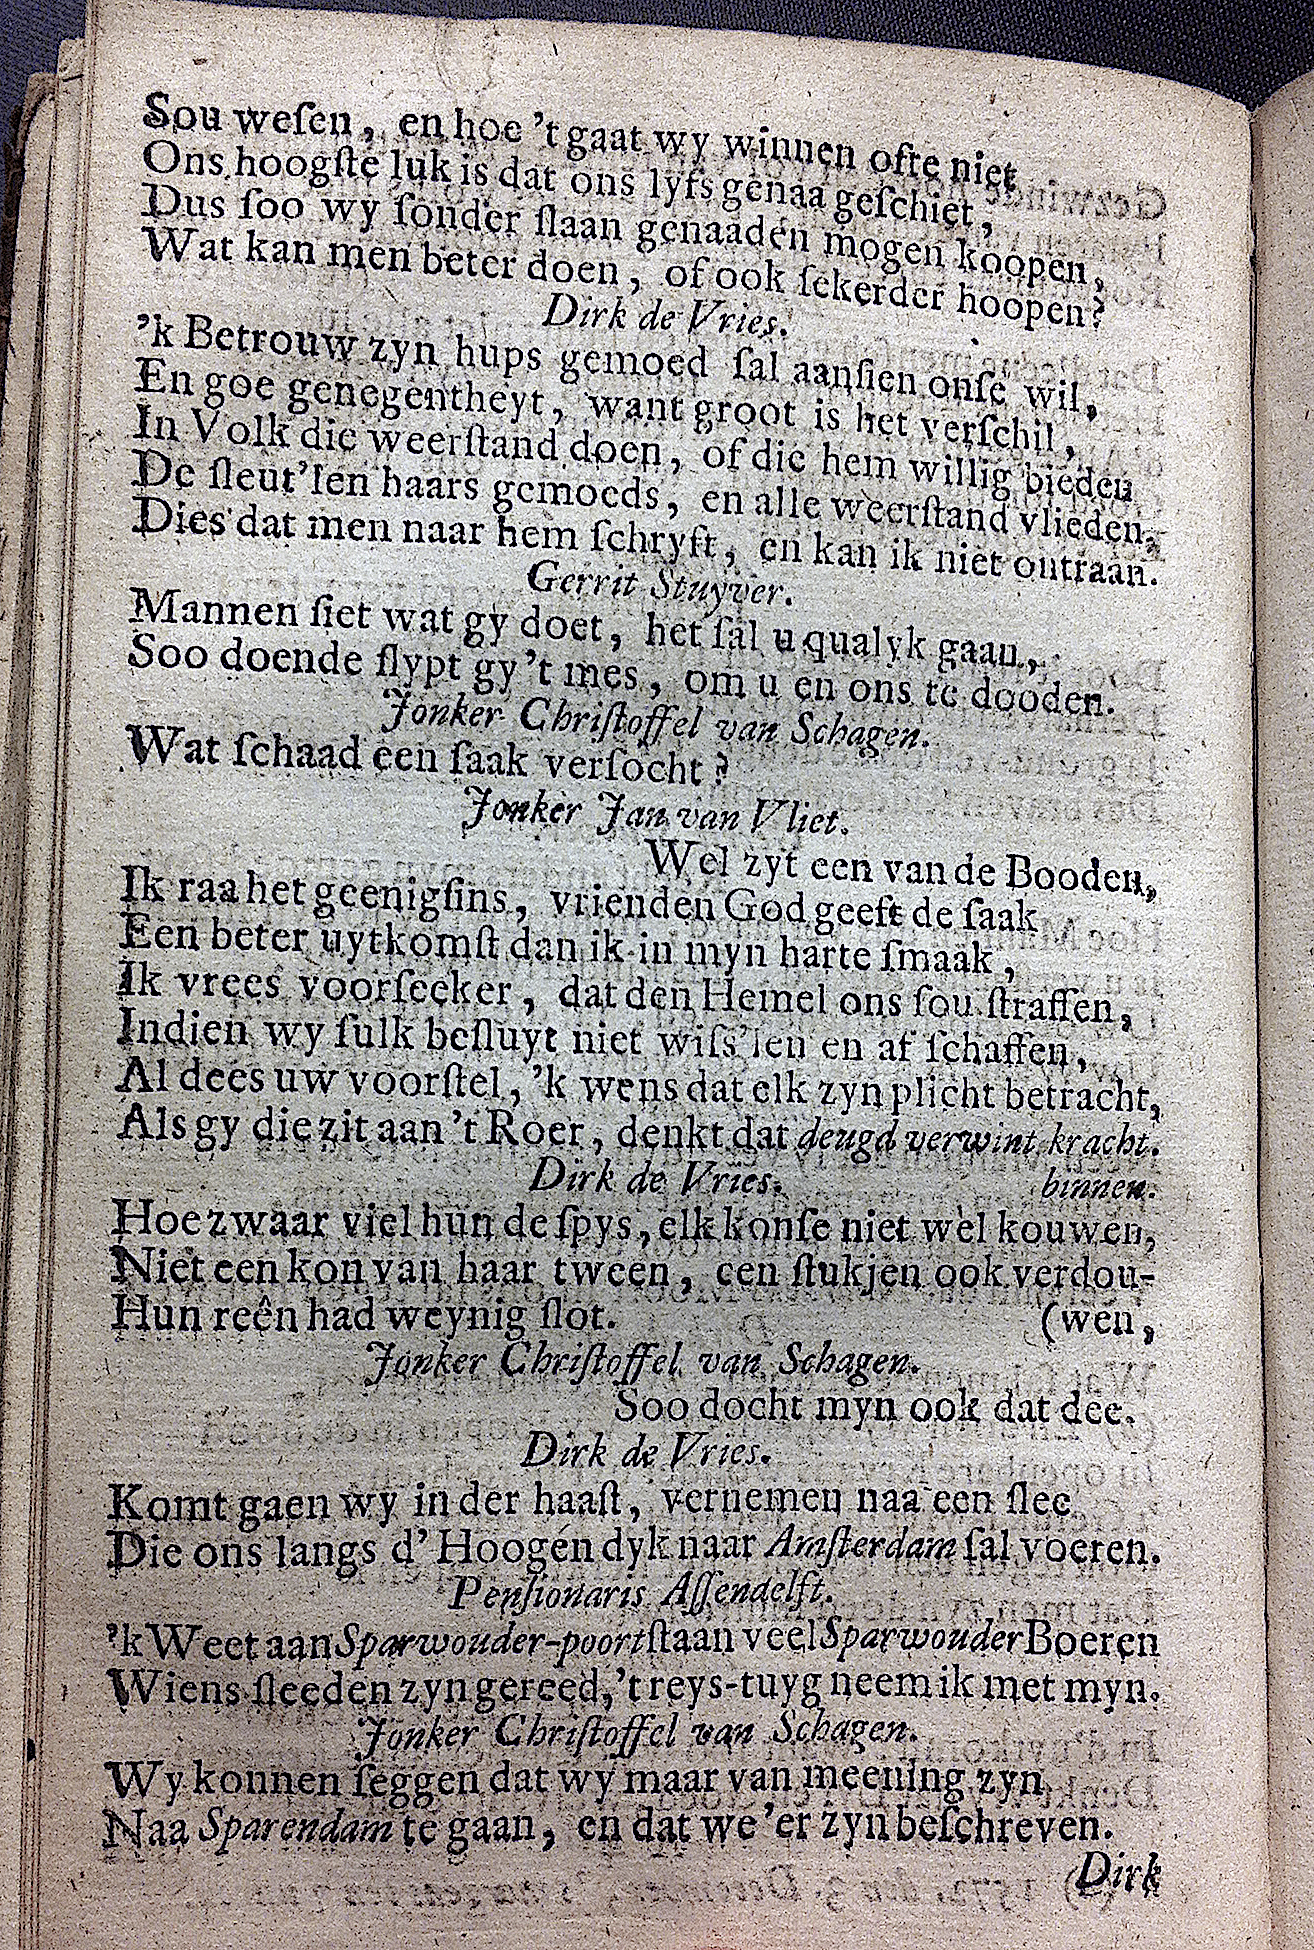 Sou weſen, en hoe 't gaat wy winnen ofte niet
Ons hoogſte luk is dat ons lyfs genaa geſchiet,
Dus ſoo wy ſonder ſlaan genaaden mogen koopen,
Wat kan men beter doen, of ook ſekerder hoopen?
Dirk de Vries.
'k Betrouw zyn hups gemoed ſal aanſien onſe wil,
En goe genegentheyt, want groot is het verſchil,
In Volk die weerſtand doen, of die hem willig bieden
De ſleut'len haars gemoeds, en alle weerſtand vlieden,
Dies dat men naar hem ſchryft, en kan ik niet ontraan.
Gerrit Stuyver.
Mannen ſiet wat gy doet, het ſal u qualyk gaan,
Soo doende ſlypt gy 't mes, om u en ons te dooden.
Jonker Chriſtoffel van Schagen.
Wat ſchaad een ſaak verſocht?
Jonker Jan van Vliet.
Wel zyt een van de Booden,
Ik raa het geenigſins, vrienden God geeft de ſaak
Een beter uytkomſt dan ik in myn harte ſmaak,
Ik vrees voorſeeker, dat den Hemel ons ſou ſtraffen,
Indien wy ſulk beſluyt niet wiſs'len en af ſchaffen,
Al dees uw voorſtel, 'k wens dat elk zyn plicht betracht,
Als gy die zit aan 't Roer, denkt dat deugd verwint kracht.
Dirk de Vries. binnen.
Hoe zwaar viel hun de ſpys, elk konſe niet wel kouwen,
Niet een kon van haar tween, een ſtukjen ook verdou-
Hun reên had weynig ſlot. (wen,
Jonker Chriſtoffel van Schagen.
Soo docht myn ook dat dee.
Dirk de Vries.
Komt gaen wy in der haaſt, vernemen naa een ſlee
Die ons langs d' Hoogen dyk naar Amſterdam ſal voeren.
Penſionaris Aſſendelft.
'k Weet aan Sparwouder-poort ſtaan veel Sparwouder Boeren
Wiens ſleeden zyn gereed, 't reys-tuyg neem ik met myn.
Jonker Chriſtoffel van Schagen.
Wy konnen ſeggen dat wy maar van meening zyn
Naa Sparendam te gaan, en dat we 'er zyn beſchreven.
Dirk